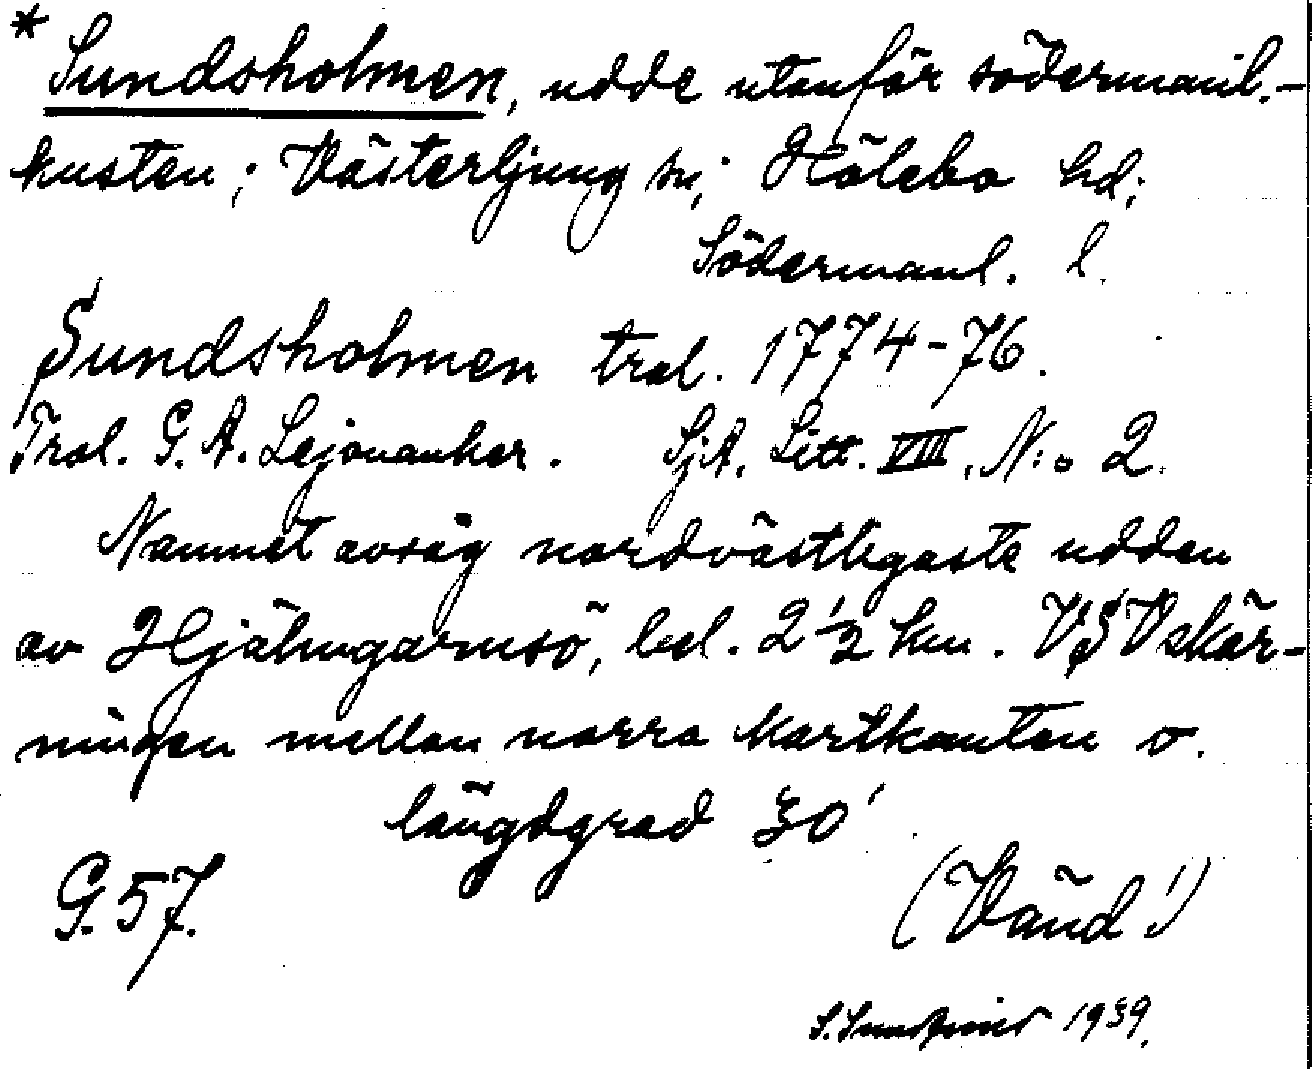 * Sundsholmen, udde utanför södermanl.-
kusten; Västerljung sn; Hölebo hd;
Södermanl. l.
Sundsholmen tral. 1774-76.
Tral. G. A. Lejonanker. SjA, Litt. VIII, N:o 2.
Namnet avsåg nordvästligaste udden
av Hjälmgarnsö, bel. 2 1/2 km. VSV skär-
ningen mellan norra kartkanten o.
längdgrad 30'
G. 57.
(Vänd!)
S. 1939.